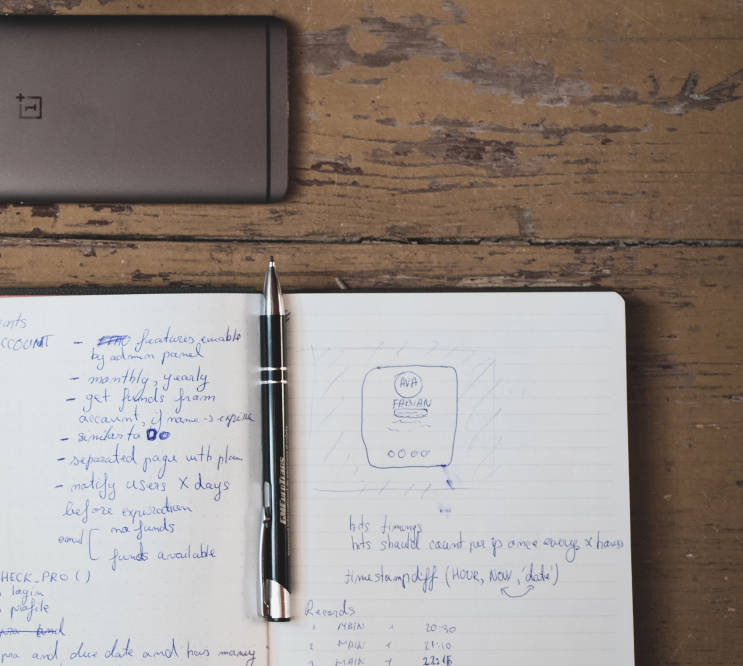 ACCOUNT - features enable
by admin panel
- monthly, yearly
- get funds from
account, if name → expire
- similar to DO
- separated page with plan
- notify users X days
before expiration
email [ no funds
funds available
CHECK_PRO ( )
login
profile
and due date and has money
AVA
FABIAN
hits timings
hits should count per ip once every x hours
timestampdiff (HOUR, NOW, 'date')
Records
1 MAIN 1 20:30
2 MAIN 1 21:10
3 MAIN 1 22:15